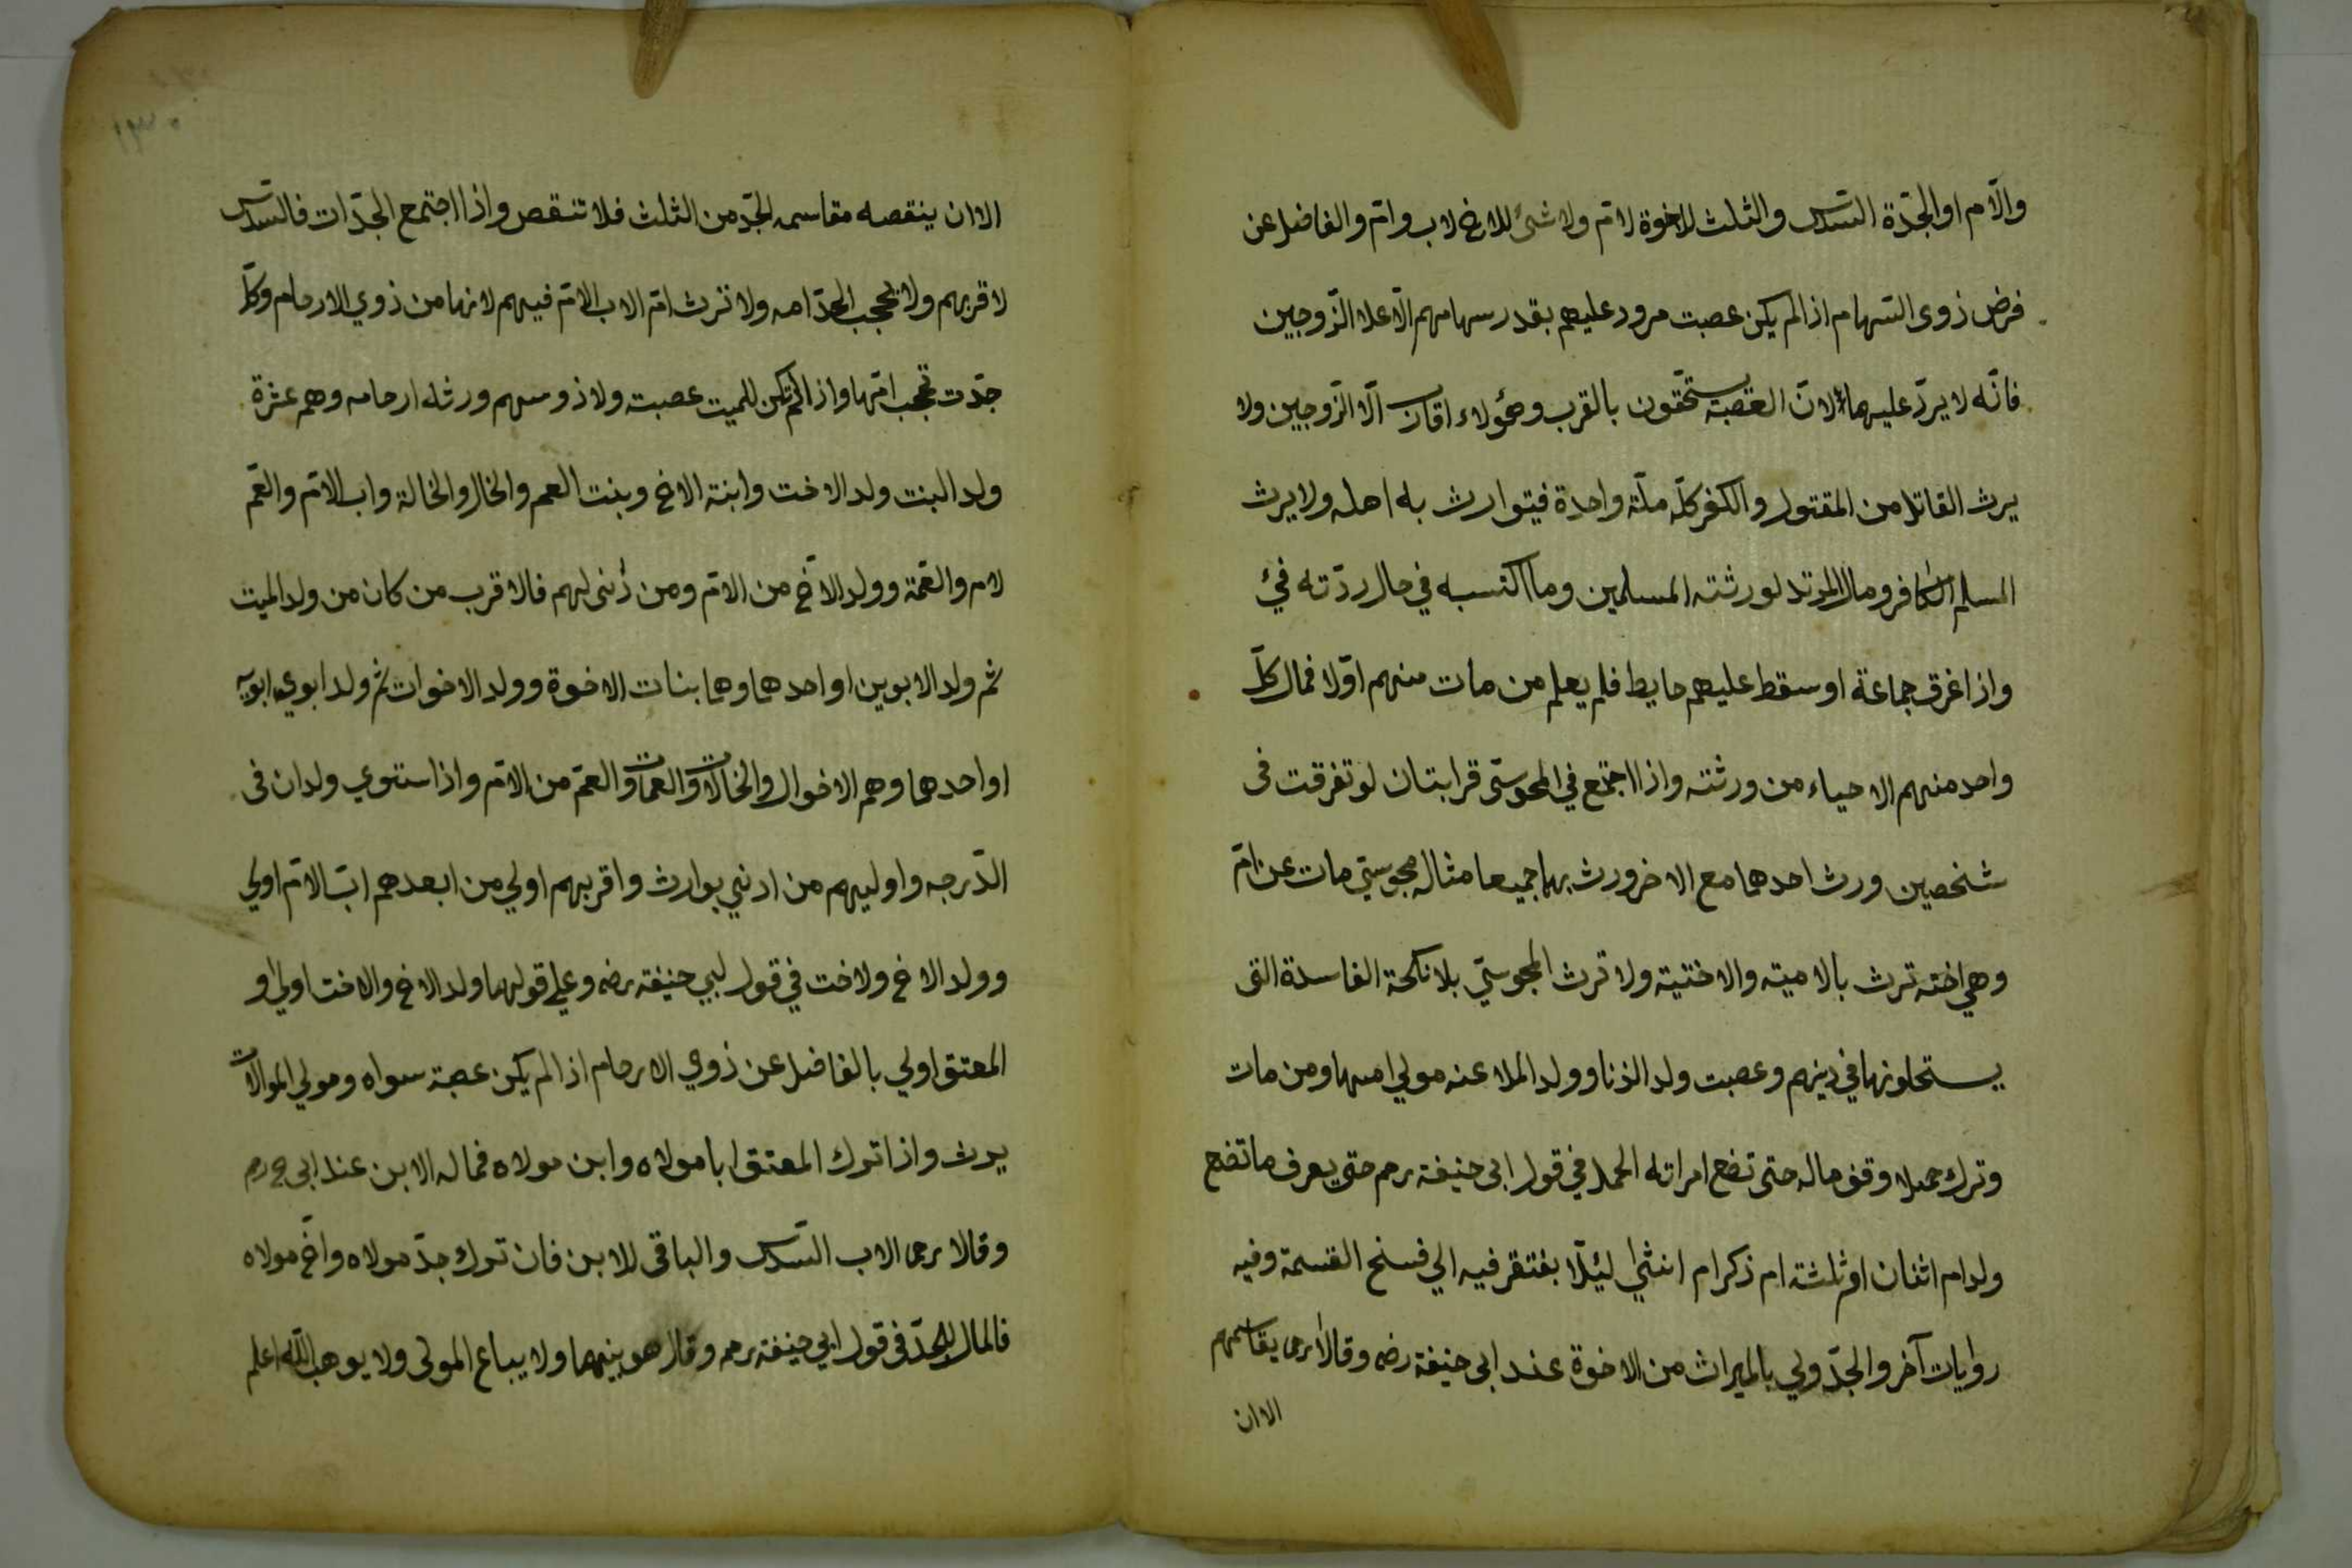 والآم او الجدّة السّدس والثلث للاخوة لامّ ولا شئ للاخ لاب وامّ والفاضل عن
فرض ذوى السّهام اذا لم يكن عصبت مرود عليهم بقدر سهامهم الّا علا الزّوجين
فانّه لا يردّ عليهما لانّ العصبة يستحّقون بالقرب وهؤلاء اقارب الّا الزّوجين ولا
يرث القاتل من المقتول والكفر كلّه ملّة واحدة فيتوارث به اهله ولا يرث
المسلم الكافر ومال المرتد لورثته المسلمين وما اكتسبه في حال ردّته فيئ
واذا غرق جماعة او سقط عليهم حايط فلم يعلم من مات منهم اوّلا فمال كلّ
واحد منهم الاحياء من ورثته واذا اجتمع في المجوسّى قرابتان لو تفرقت فى
شخصين ورث احدهما مع الاخر ورث بهما جميعا مثاله مجوسيّ مات عن امّ
وهي اخته ترث بالاميته والاختيته ولا ترث المجوسيّ بلانكحة الفاسدة التى
يستحلونها في دينهم وعصبت ولد الزنا وولد الملاعنه مولي امهما ومن مات
وترك حملا وقف ماله حتى تضع امراته الحمل في قول ابى حنيفة رحم حتى يعرف ما تضع
ولد ام اثنان او ثلثته ام ذكر ام انثي ليئلّا يفتقر فيه الي فسخ القسمة وفيه
روايات آخر والجدّ ولي بالميراث من الاخوة عند ابى حنيفة رضه وقالا رحم يقاسمهم
الا ان
١٣٠
الا ان ينقصه مقاسمه الجدّ من الثلث فلا تنقص واذا اجتمع الجدّات فالسّدس
لاقربهم ولا يحجب الجدّ امه ولا ترث امّ الاب الامّ فيهم لانها من ذوي الارحام وكلّ
جدّت تحجب امّها واذا لم تكن للميت عصبت ولا ذو سهم ورثه ارحامه وهم عشرة
ولد البنت ولد الاخت وابنة الاخ وبنت العم والخال والخالة واب الامّ والعّم
لام والعّمة وولد الاخ من الامّ ومن ذنى لهم فالاقرب من كان من ولد الميت
ثم ولد الابوين او احدهما وهما بنات الاخوة وولد الاخوات ثم ولد ابوي ابويه
او احدهما وهم الاخوال والخالات والعمات والعمّ من الامّ واذا ستوي ولدان فى
الدّرجه واوليهم من ادني بوارث واقربهم اولي من ابعدهم ابّ الامّ اولي
وولد الاخ ولاخت في قول لبي حنيفة رضه وعلي قولهما ولد الاخ والاخت اولي و
المعتق اولي بالفاضل عن ذوي الارحام اذا لم يكن عصبة سواه ومولي الموالات
يرث واذا ترك المعتق ابا مولاه وابن مولاه فماله الابن عند ابى ح رحم
وقالا رحما الاب السّدس والباقى للابن فان ترك جدّ مولاه واخ مولاه
فالمال للجدّ فى قول ابي حنيفة رحمه وقال هو بينهما ولا يباع المولى ولا يوهب اللّه اعلم